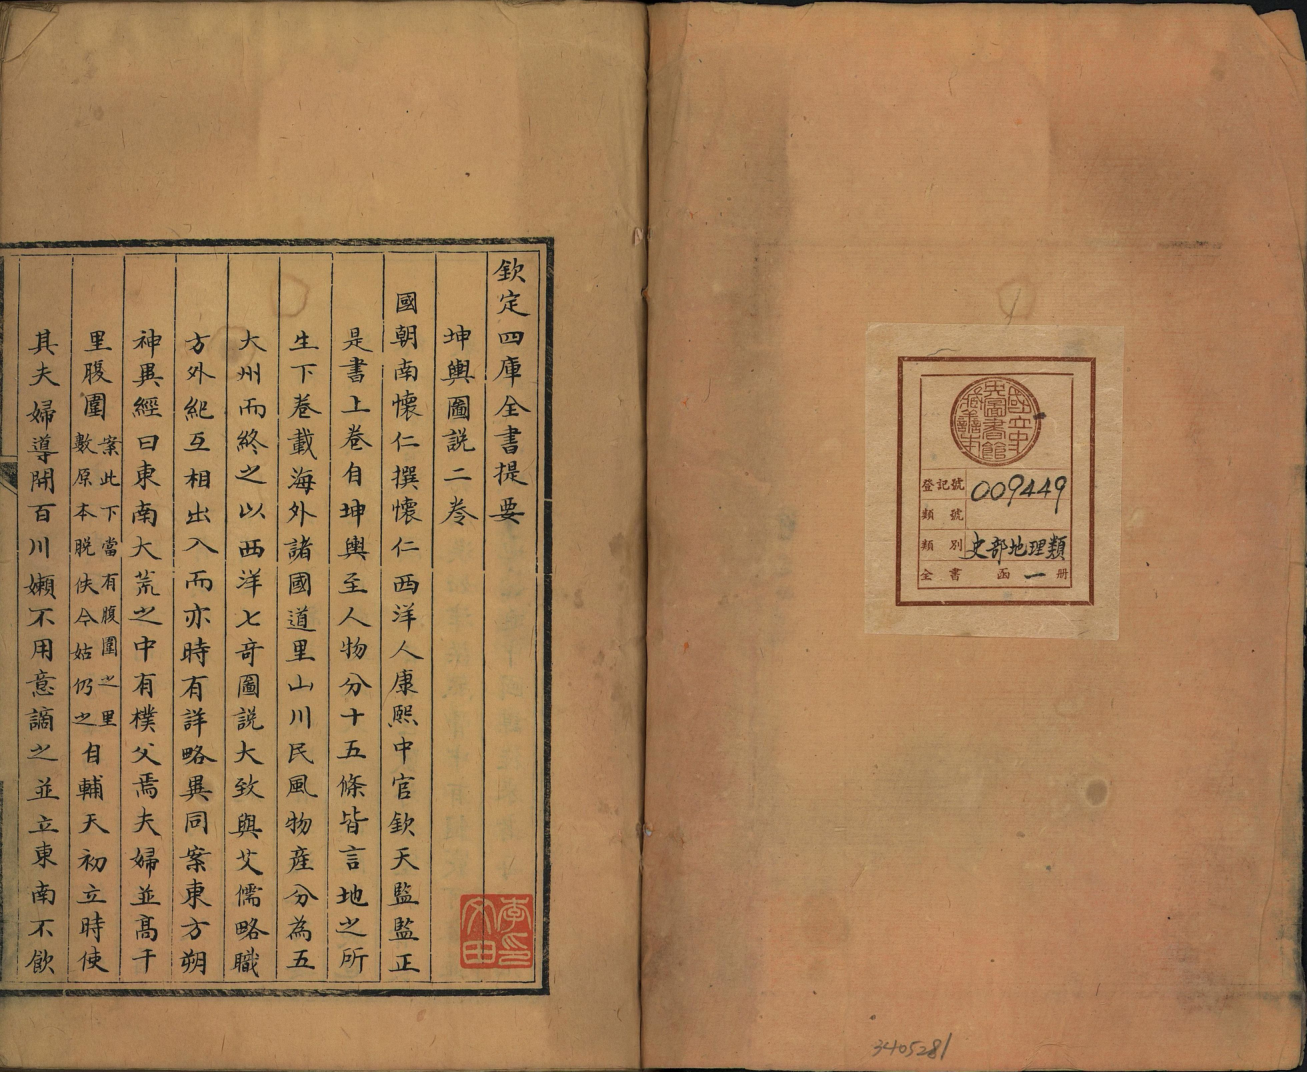 國立中央圖書館藏善本
登記號 009449
類號
類別 史部地理類
全書 函 一 册
3405281
欽定四庫全書提要
坤輿圖説二卷
國朝南懷仁撰懷仁西洋人康熙中官欽天監監正
是書上卷自坤輿至人物分十五條皆言地之所
生下卷載海外諸國道里山川民風物產分為五
大州而終之以西洋七奇圖説大致與艾儒略職
方外紀互相出入而亦時有詳略異同案東方朔
神異經曰東南大荒之中有樸父焉夫婦並高千
里腹圍案此下當有腹圍之里數原本脱佚今姑仍之自輔天初立時使
其夫婦導開百川嬾不用意謫之並立東南不飲
李印文田